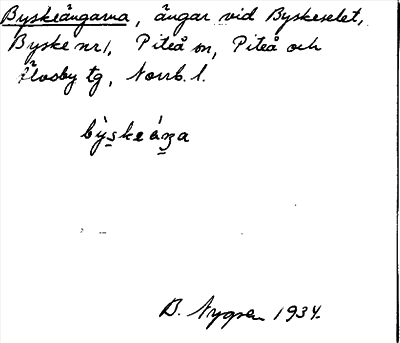 Byskeängarna, ängar vid Byskeselet,
Byske nr 1, Piteå sn, Piteå och
Älvsby tg, Norrb. l.
B. Nygren 1934.